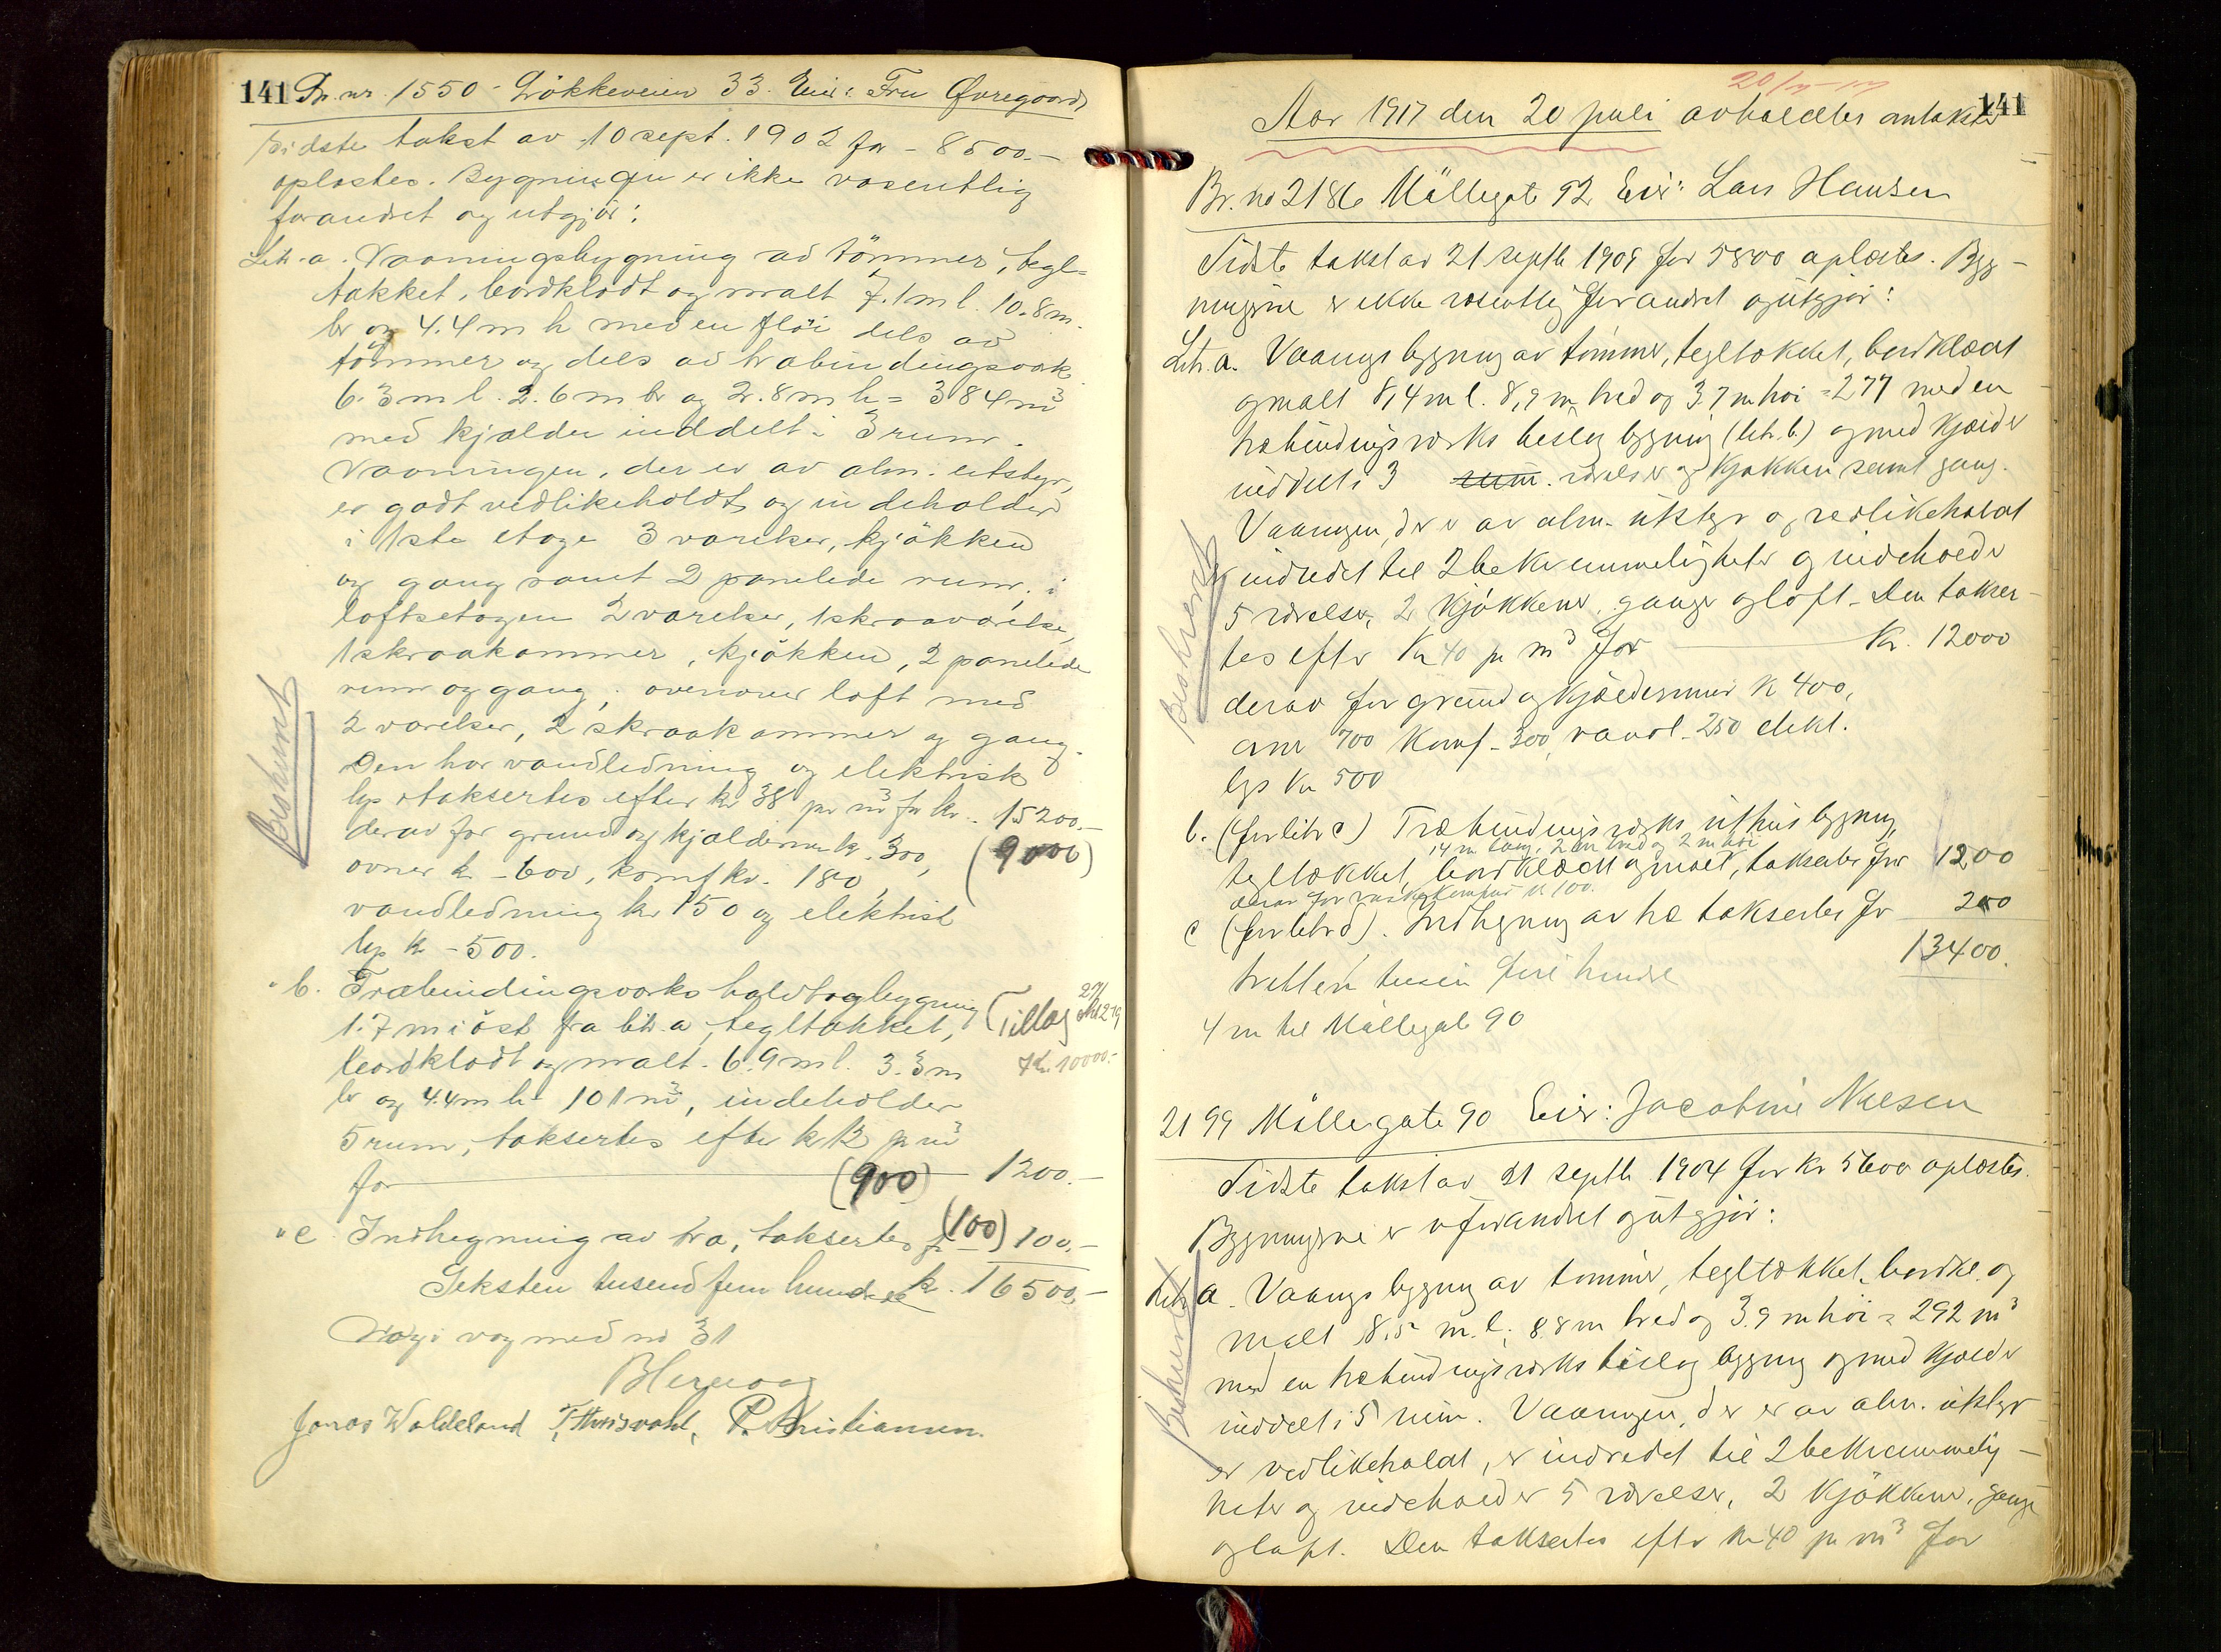 141 Br. nr. 1550 - Lökkeveien 33. Eier: Fru Øvregaard
Sidste takst av 10 sept. 1902 for - 8500.-
oplæstes. Bygningen er ikke væsentlig
forandret og utgjör:
Litr. a. Vaaningsbygning av tömmer, tegl-
tækket, bordklædt og malt 7.1 m l. 10.8 m.
br og 4.4 m h med en flöi dels av
tömmer og dels av træbindingsverk
6.3 m l. 2.6 m br og 2.8 m h = 384 m3
med kjælder inddelt i 3 rum.
Vaaningen, der er av alm. utstyr,
er godt vedlikeholdt og indeholder
i 1ste etage 3 værelser, kjökken
og gang samt 2 panelede rum, i
loftsetagen 2 værelser, 1 skraaværelse,
1 skraakammer, kjökken, 2 panelede
rum og gang, ovenover loft med
2 værelser, 2 skraakammer og gang.
Den har vandledning og elektrisk
lys & taksertes efter kr 38 pr m3 for kr. 15200.-
derav for grund og kjældermur kr. 300, (9000)
ovner kr - 600, komf kr. 180,
vandledning kr 150 og elektrisk
lys kr - 500.
Beskrevet
" b. Træbindingsverks halvtagbygning
1.7 m i öst fra litr a, tegltækket, (Tillæg 271 279
bordklædt og malt. 6.9 m l. 3.3 m Kr. 10000.-
br og 4.4 m h = 101 m3, indeholder
5 rum, taksertes efter kr 12 pr m3
for (900) 1200.-
" c Indhegning av træ, taksertes fr (100) 100.-
Seksten tusend fem hundrede kr. 16500.-
Væg i væg med no 31
Jonas Waldeland T. Thorsvahl, P. Kristiansen.
20/7-17
141
Aar 1917 den 20 juli avholdtes omtakst
Br. no 2186 Möllegt 92 Eier: Lars Hansen
Sidste takst av 21 septb 1909 for 5800 oplæstes. Byg-
ningerne er ikke væsentlig forandret og utgjör:
Litr. a. Vaanings bygning av tömmer, tegltækket, bordklædt
og malt 8,4 m l. 8,9 m bred og 3,7 m höi = 277 med en
træbindingsverks beslag bygning (litr. b.) og med kjælder
inddelt i 3 rum. værelser og kjökken samt gang.
Vaaningen, der er av alm. utstyr og vedlikeholdt
er indredet til 2 bekvemmeligheter og indeholder
5 værelser, 2 kjökkener, ganger og loft. Den takser-
tes efter Kr 40 pr m3 for Kr. 12000
derav for grund og kjældermur K 400,
ovne 700 Komf - 300, vandl. 250 elekt.
lys Kr 500
Beskrevet
b. (för litr c) Træbindingsverks uthus bygning,
14 m lang, 2 m bred og 2 m höi
tegltækket, bordklædt og malt, taksertes for 1200
derav for vaskekomfur K 100.
c (för litr d). Indhegning av træ taksertes for 200
13400.
tretten tusen fire hundre
4 m til Möllegate 90
2199 Möllegate 90 Eier: Jacobine Nielsen
Sidste takst av 21 septb. 1904 for kr 5600 oplæstes.
Bygningerne er uforandret og utgjör:
Litr a. Vaanings bygning av tömmer, tegltækket, bordkl. og
malt 8,5 m. l; 8.8 m bred og 3.9 m höi = 292 m3
med en træbindingsverks beslag bygning og med kjælder
inddelt i 5 rum. Vaaningen, der er av alm. utstyr
er vedlikeholdt, er indredet til 2 bekvemmelig-
heter og indeholder 5 værelser, 2 kjökkener, gange
og loft. Den taksertes efter kr 40 pr m3 for
Beskrevet